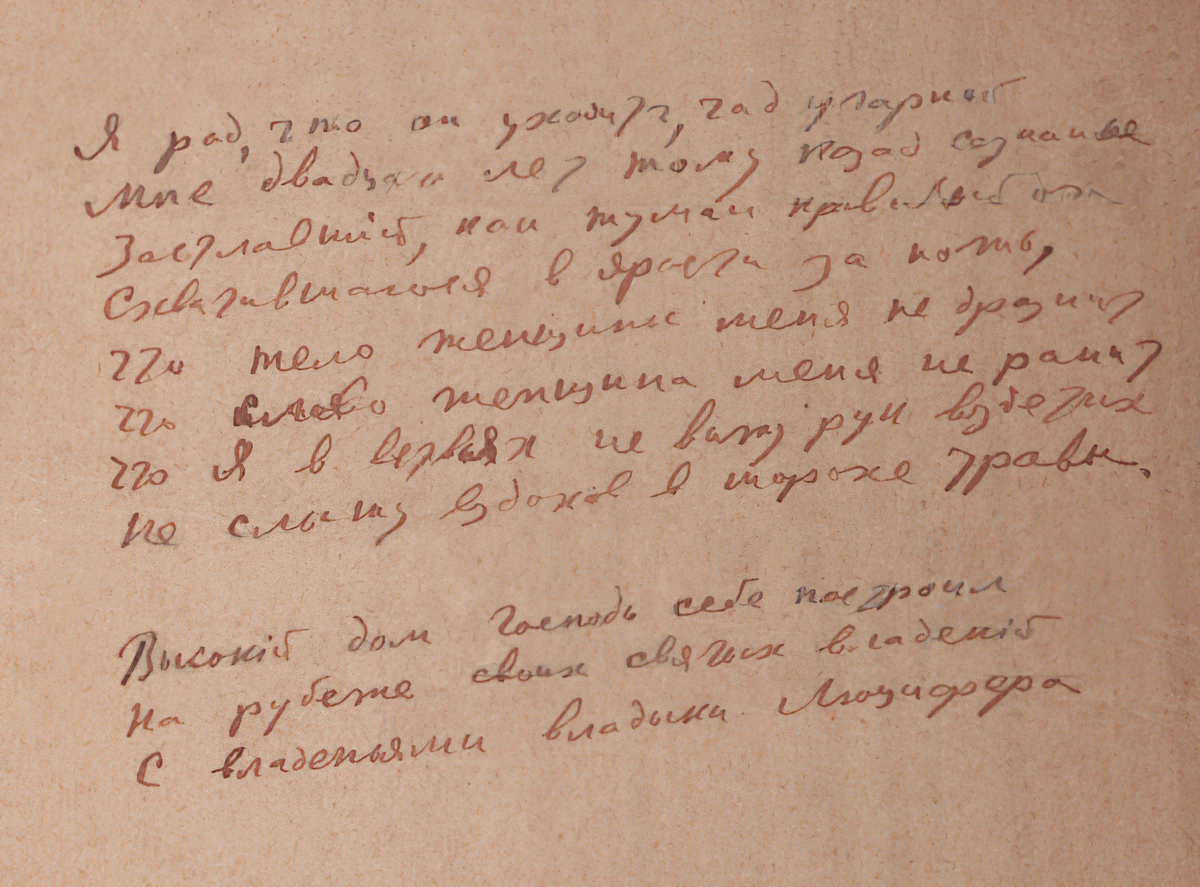 Я рад, что он уходит, чад угарный
Мне двадцать лет тому назад сознанье
Застлавшій, как туман кровавый очи
Схватившагося в ярости за ножъ,
Что тело женщины меня не дразнит
Что слово женщины меня не ранит
Что Я в ветвях не вижу рук воздетых
Не слышу вздохов в шорохе травы.
Высокій дом Господь себе построил
На рубеже своих святых владеній
С владеньями владыки Люцифера